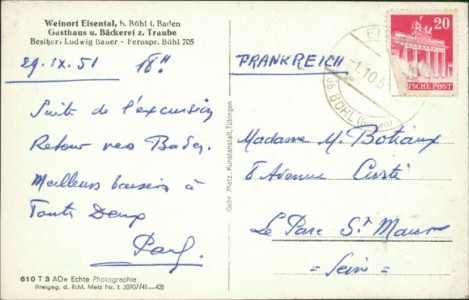 Weinort Eisental, b. Bühl i. Baden
Gasthaus u. Bäckerei z. Traube
Besitzer: Ludwig Bauer · Fernspr. Bühl 705
29.IX.51 18H
Suite de l'excursion
Retour vers Baden.
Meilleurs baisers à
Toute Deux
610 T 3 AOe Echte Photographie
(Freigeg. d. RLM. Metz Nr. I: 30907/41—42)
Gebr. Metz, Kunstanstalt, Tübingen
20
DEUTSCHE POST
-1.10.5
BÜHL
FRANKREICH
Madame M. Botiaux
8 Avenue
Le Parc St Maur
= Seine =